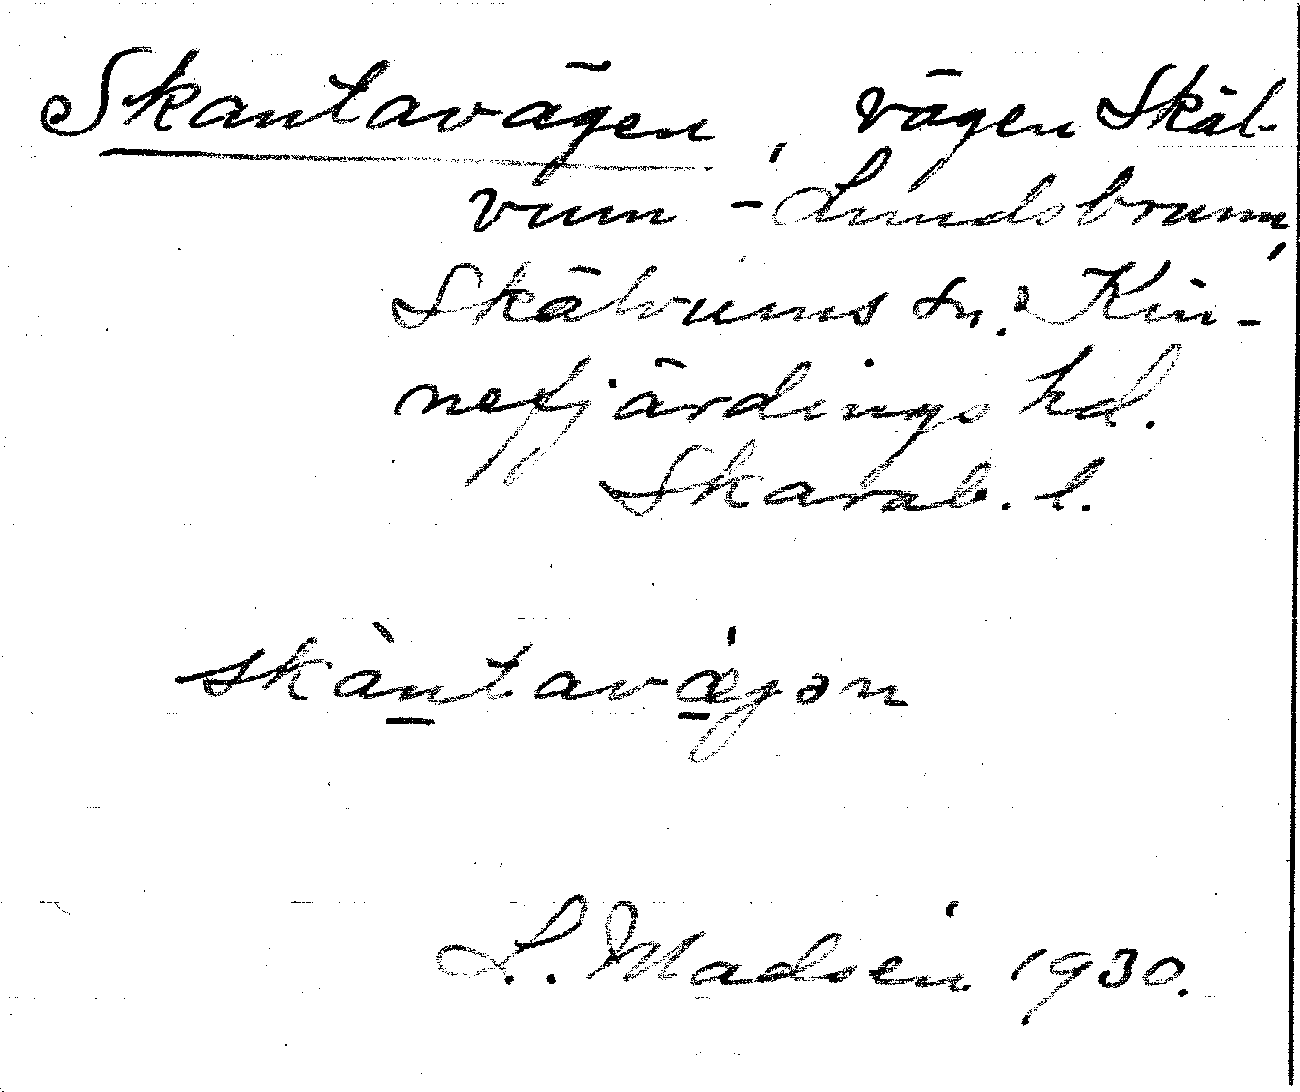 Skantavägen, vägen Skäl-
vum - Lundsbrunn,
Skälvums sn. Kin-
nefjärdings hd.
Skarab. l.
skàntavǽgən
L. Madsén 1930.